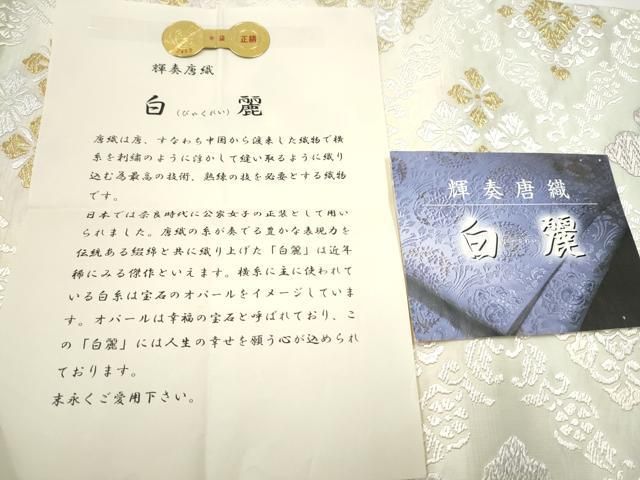 正絹
輝奏唐織
白(びゃくれい)麗
唐織は唐、すなわち中国から渡来した織物で横
糸を刺繍のように浮かして縫い取るように織り
込む為最高の技術、熟練の技を必要とする織物
です。
日本では奈良時代に公家女子の正装として用い
られました。唐織の糸が奏でる豊かな表現力を
伝統ある綴錦と共に織り上げた「白麗」は近年
稀にみる傑作といえます。横糸に主に使われて
いる白糸は宝石のオパールをイメージしていま
す。オパールは幸福の宝石と呼ばれており、こ
の「白麗」には人生の幸せを願う心が込められ
ております。
末永くご愛用下さい。
輝奏唐織
白麗